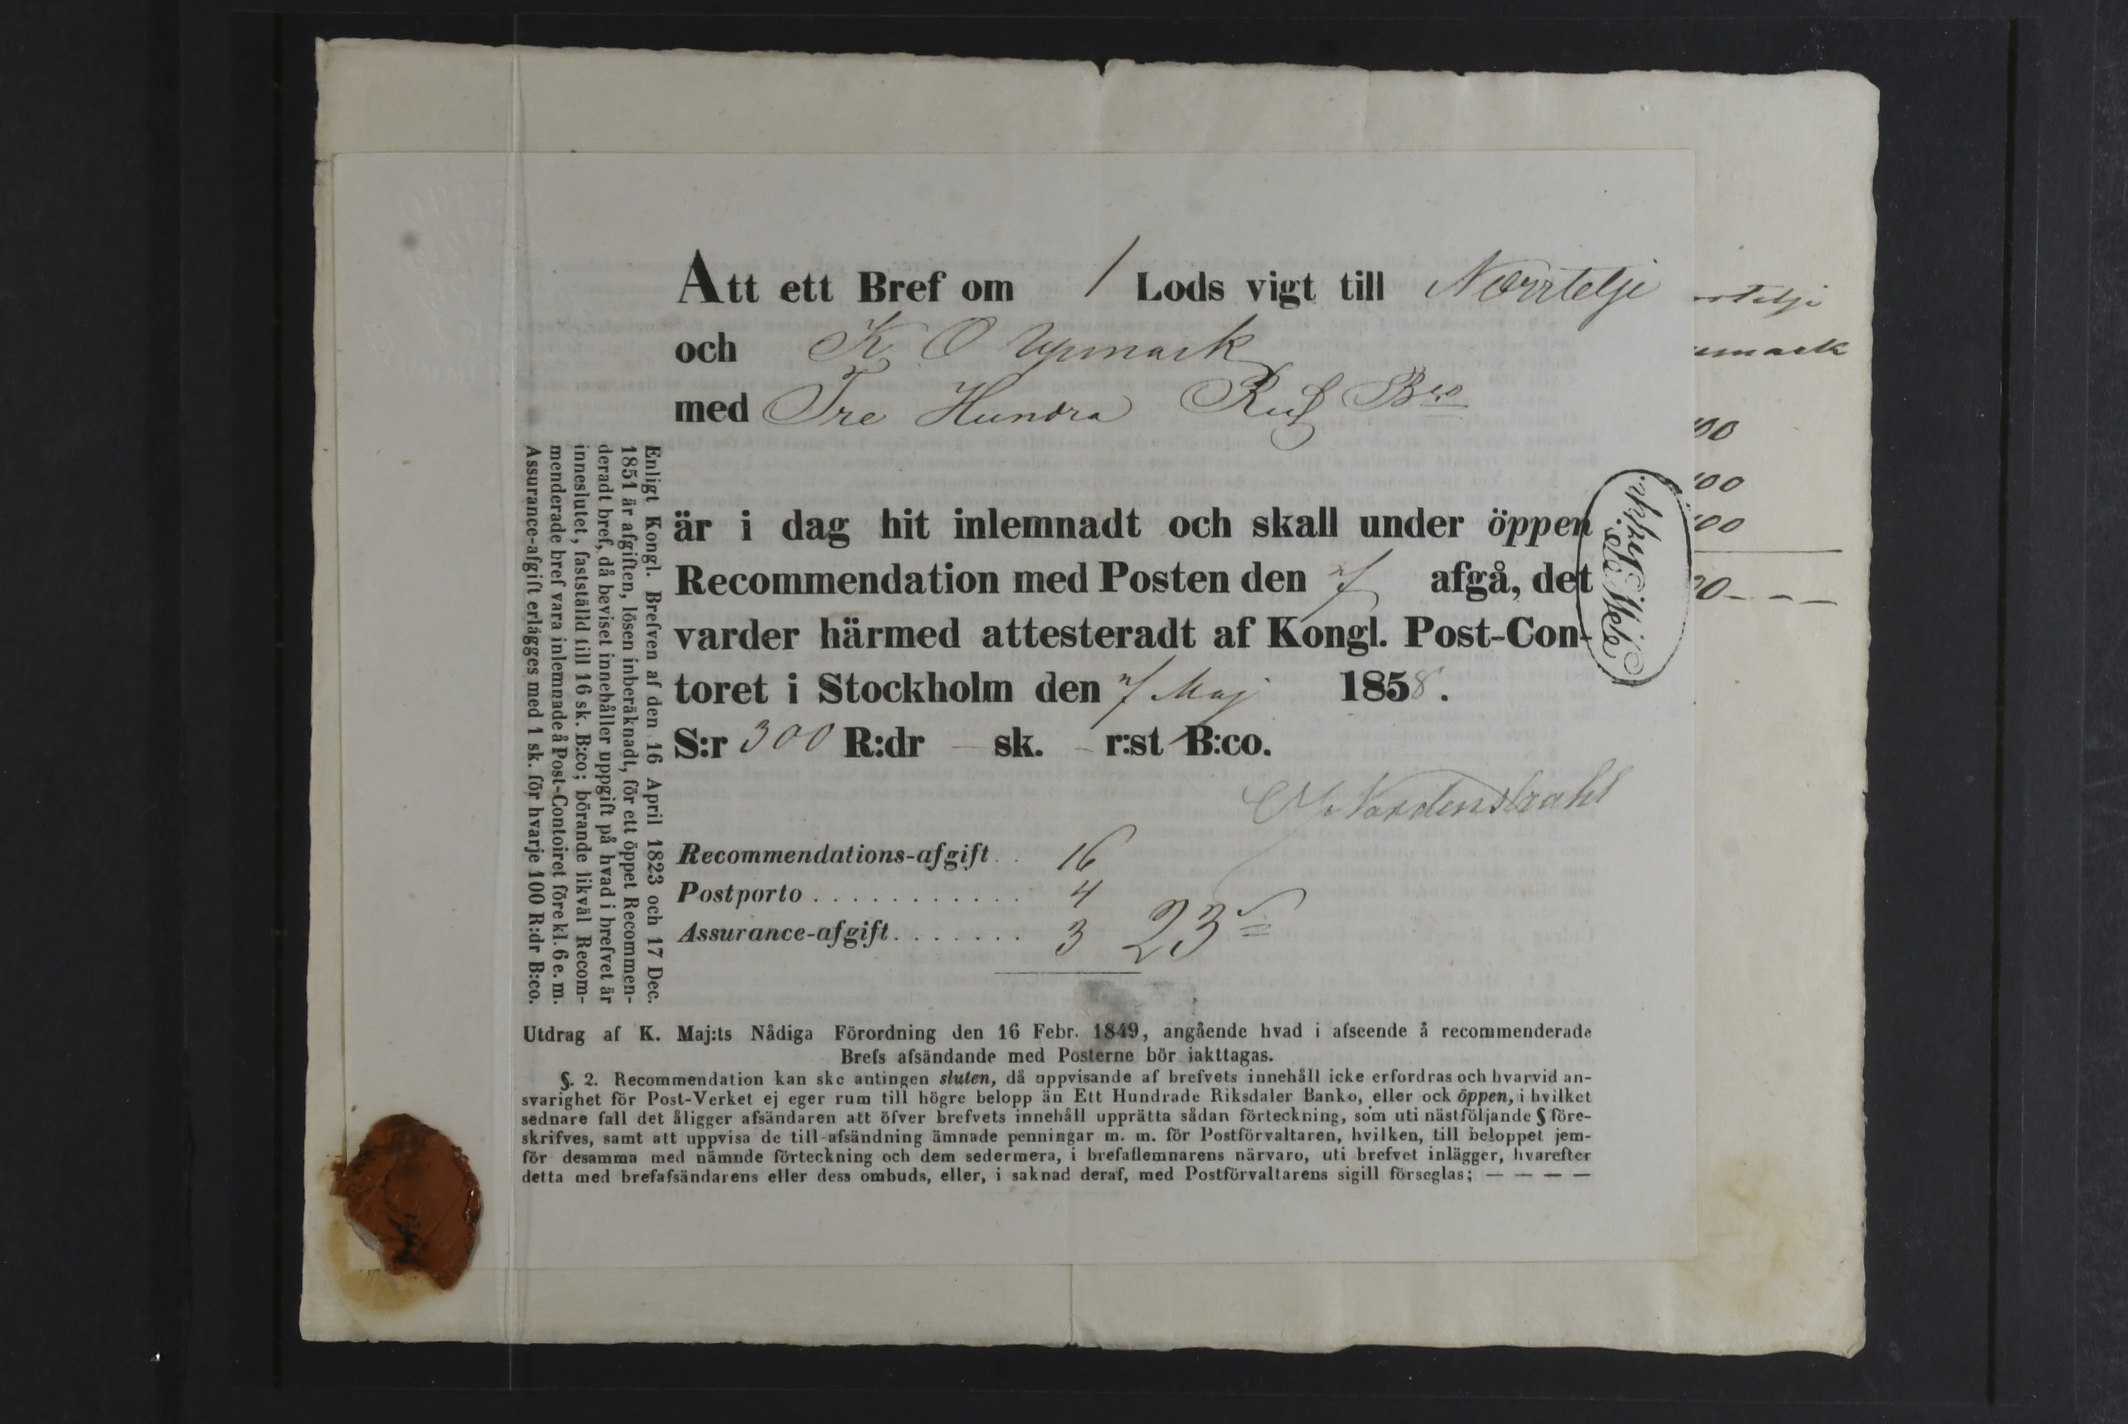 Att ett Bref om 1 Lods vigt till Norrtelje
och K O Upmark
med Tre Hundra Rd Bco
är i dag hit inlemnadt och skall under öppen
Recommendation med Posten den 7 afgå, det
varder härmed attesteradt af Kongl. Post-Con-
toret i Stockholm den 7 Maj 1858.
S:r 300 R:dr — sk. — r:st B:co.
Nordenstrahl
Recommendations-afgift. . 16
Postporto . . . . . . . . . . . 4
Assurance-afgift. . . . . . . 3 23
Enligt Kongl. Brefven af den 16 April 1823 och 17 Dec.
1851 är afgiften, lösen inberäknadt, för ett öppet Recommen-
deradt bref, då beviset innehåller uppgift på hvad i brefvet är
inneslutet, fastställd till 16 sk. B:co; börande likväl Recom-
menderade bref vara inlemnade å Post-Contoiret före kl. 6 e. m.
Assurance-afgift erlägges med 1 sk. för hvarje 100 R:dr B:co.
Utdrag af K. Maj:ts Nådiga Förordning den 16 Febr. 1849, angående hvad i afseende å recommenderade
Brefs afsändande med Posterne bör iakttagas.
§. 2. Recommendation kan ske antingen sluten, då uppvisande af brefvets innehåll icke erfordras och hvarvid an-
svarighet för Post-Verket ej eger rum till högre belopp än Ett Hundrade Riksdaler Banko, eller ock öppen, i hvilket
sednare fall det åligger afsändaren att öfver brefvets innehåll upprätta sådan förteckning, som uti nästföljande § före-
skrifves, samt att uppvisa de till afsändning ämnade penningar m. m. för Postförvaltaren, hvilken, till beloppet jem-
för desamma med nämnde förteckning och dem sedermera, i brefaflemnarens närvaro, uti brefvet inlägger, hvarefter
detta med brefafsändarens eller dess ombuds, eller, i saknad deraf, med Postförvaltarens sigill förseglas; — — — —